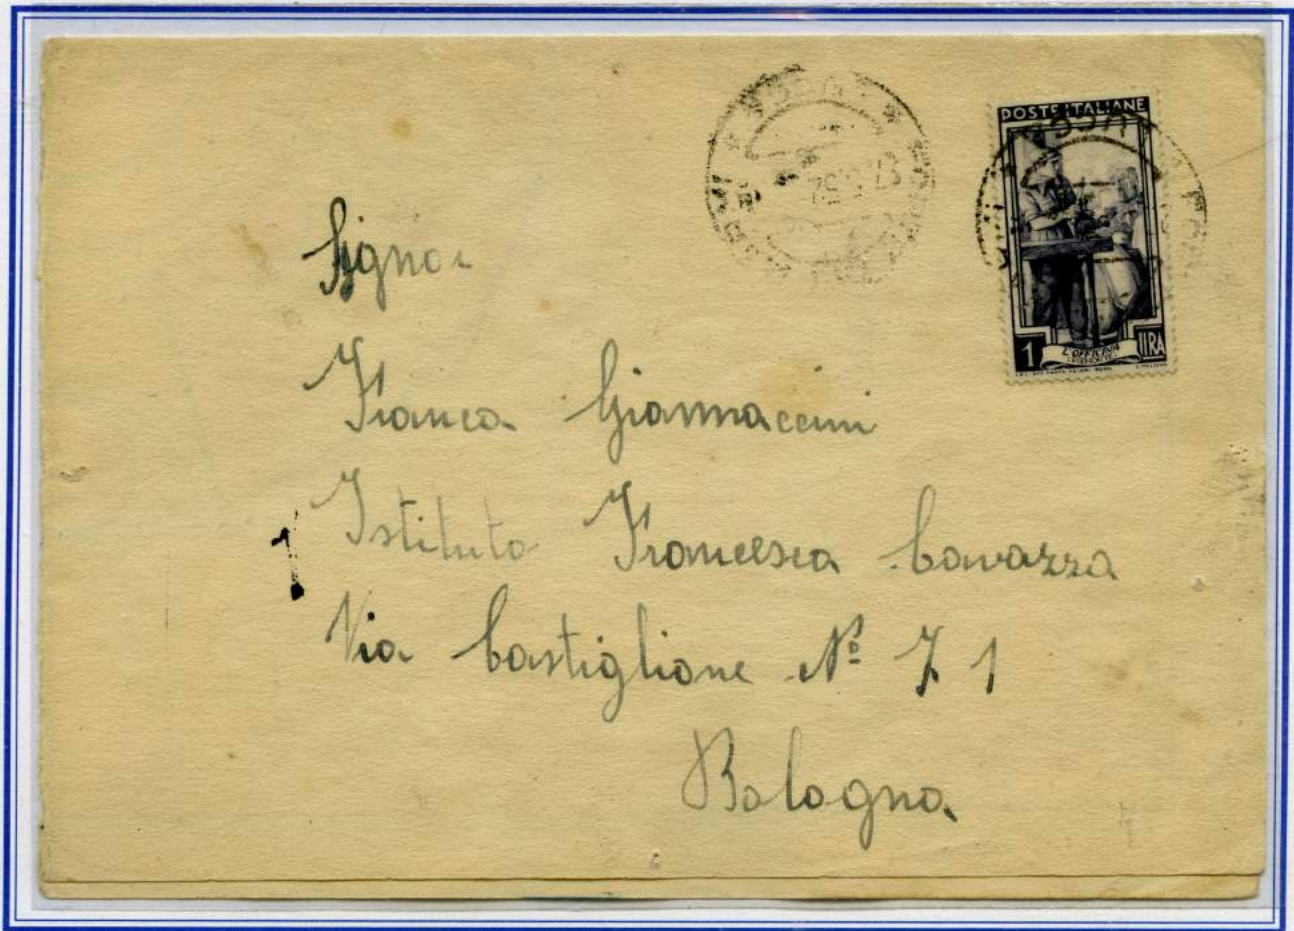 POSTE ITALIANE
1 LIRA
L'OFFICINA
Signor
Franca Giannaccini
Istituto Francesco Cavazza
Via Castiglione Nº 71
Bologna